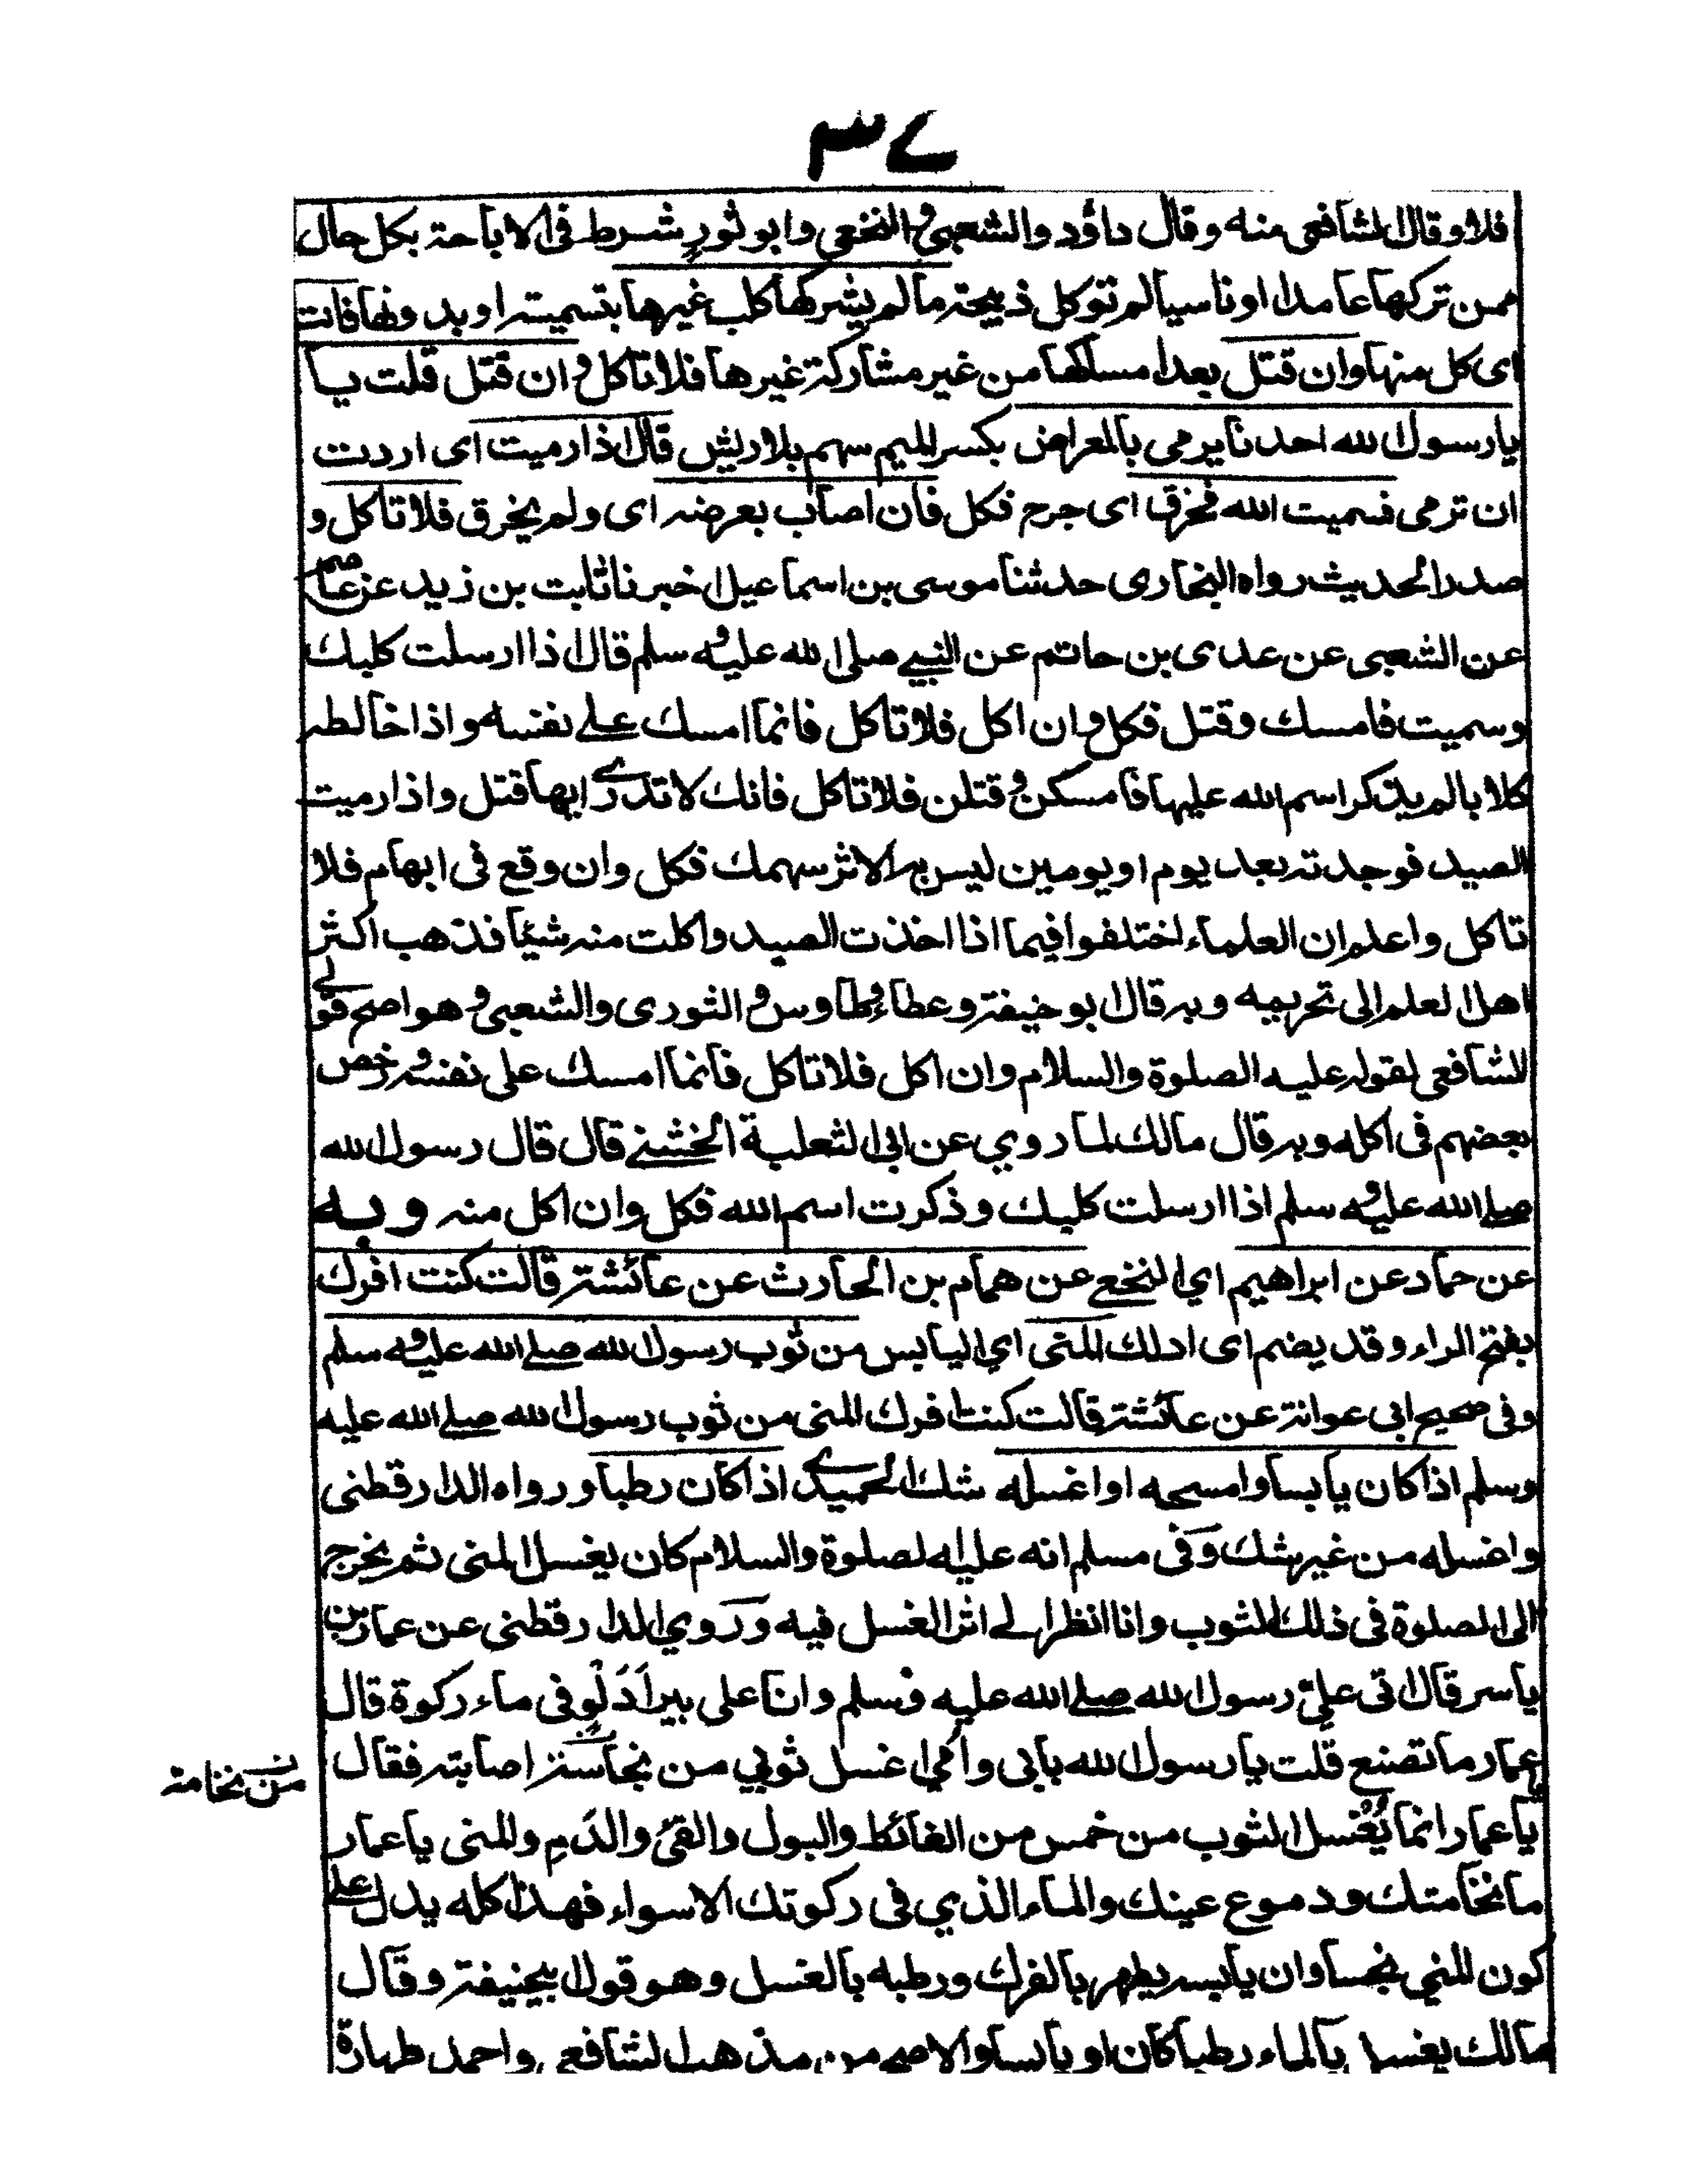 ٣٧
فلا وقال الشافعي منه وقال داؤد والشعبي والنخعي وابو ثور شرط في الاباحة بكل حال
فمن تركها عامدا او ناسيا لم توكل ذبيحته ما لم يشركها كلب غيرها بتسميته او بدونها فات
اى كل منها وان قتل بعد امساكها من غير مشاركة غيرها فلا تاكل وان قتل قلت يا
يا رسول الله احدنا يرمى بالمعراض بكسر الميم سهم بلا ريش قال اذا رميت اى اردت
ان ترمى فسميت الله فخزق اى جرح فكل فان اصاب بعرضه اى ولم يخرق فلا تاكل و
صدر الحديث رواه البخارى حدثنا موسى بن اسماعيل اخبرنا ثابت بن زيد عن عاصم
عن الشعبى عن عدى بن حاتم عن النبي صلى الله عليه وسلم قال اذا ارسلت كلبك
وسميت فامسك وقتل فكل وان اكل فلا تاكل فانما امسك على نفسه واذا خالطه
كلابا لم يذكر اسم الله عليها فامسكن وقتلن فلا تاكل فانك لا تدرى ايها قتل واذا رميت
الصيد فوجدته بعد يوم او يومين ليس به الا اثر سهمك فكل وان وقع فى ابهام فلا
تاكل واعلم ان العلماء اختلفوا فيما اذا اخذت الصيد واكلت منه شيئا فذهب اكثر
اهل العلم الى تحريمه وبه قال ابو حنيفة وعطاء وطاوس والثورى والشعبى وهو اصح قولي
للشافعى لقوله عليه الصلوة والسلام وان اكل فلا تاكل فانما امسك على نفسه ورخص
بعضهم فى اكله وبه قال مالك لما روي عن ابى الثعلبة الخشنے قال قال رسول الله
صلے الله عليه وسلم اذا ارسلت كلبك وذكرت اسم الله فكل وان اكل منه وبه
عن حماد عن ابراهيم اي النخعے عن همام بن الحارث عن عائشة قالت كنت افرك
بفتح الراء وقد يضم اى ادلك المنى اي اليابس من ثوب رسول الله صلے الله عليه وسلم
وفى صحيح ابى عوانة عن عائشة قالت كنت افرك المنى من ثوب رسول الله صلے الله عليه
وسلم اذا كان يابسا وامسحه او اغسله شك الحميدے اذا كان رطبا ورواه الدارقطنى
واغسله من غير شك وفى مسلم انه عليه الصلوة والسلام كان يغسل المنى ثم يخرج
الى الصلوة فى ذلك الثوب وانا انظر الے اثر الغسل فيه وروي الدارقطنى عن عمار بن
ياسر قال اتى علىّ رسول الله صلے الله عليه وسلم وانا على بير اَدَلْو فى ماء ركوة قال
عمار ما تصنع قلت يا رسول الله بابى وامي اغسل ثوبي من نجاسة اصابته فقال
من نخامة
يا عمار انما يُغسل الثوب من خمس من الغائط والبول والقئ والدم والمنى يا عمار
ما نخامتك ودموع عينك والماء الذي فى ركوتك الا سواء فهذا كله يدل على
كون المني نجسا وان يابسه يطهر بالفرك ورطبه بالغسل وهو قول ابيحنيفة وقال
مالك يغسل بالماء رطبا كان او يابسا والاصح من مذهب الشافعى واحمد طهارة